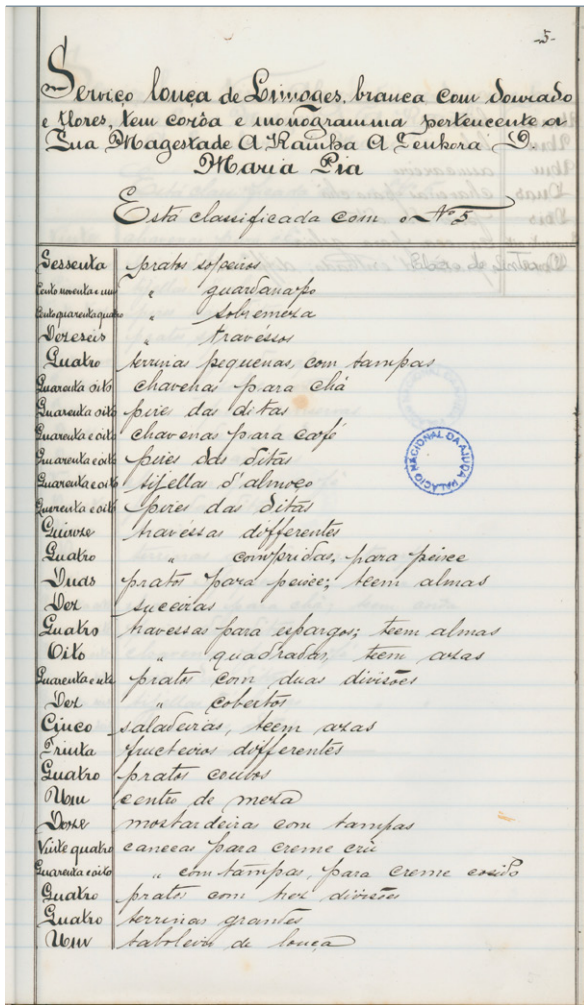 -5-
Serviço louça de Limoges, branca com dourado
e flores, tem corôa e monogramma pertencente a
Sua Magestade A Rainha A Senhora D.
Maria Pia
Está classificada com o Nº 5
Sessenta pratos sopeiros
Cento noventa e um " guardanapo
Cento quarenta quatro " sobremeza
Dezeseis " travéssos
Quatro terrinas pequenas, com tampas
Quarenta oito chavenas para chá
Quarenta oito pires das ditas
Quarenta e oito chavenas para café
Quarenta e oito pires das ditas
Quarenta e oito tijellas d'almoço
Quarenta e oito pires das ditas
Quinze travéssas differentes
Quatro " compridas, para peixe
Duas pratos para peixe; teem almas
Dez
Quatro travessas para espargos; teem almas
Oito " quadradas, teem azas
Quarenta e pratos com duas divisões
Dez " cobertos
Cinco saladeiras, teem azas
Trinta fructeiros differentes
Quatro pratos covos
Um centro de meza
Doze mostardeiras com tampas
Vinte quatro canecas para creme crú
Quarenta e oito " com tampas, para creme cosido
Quatro pratos com trez divisões
Quatro terrinas grandes
Um taboleiro de louça
PALACIO NACIONAL DA AJUDA